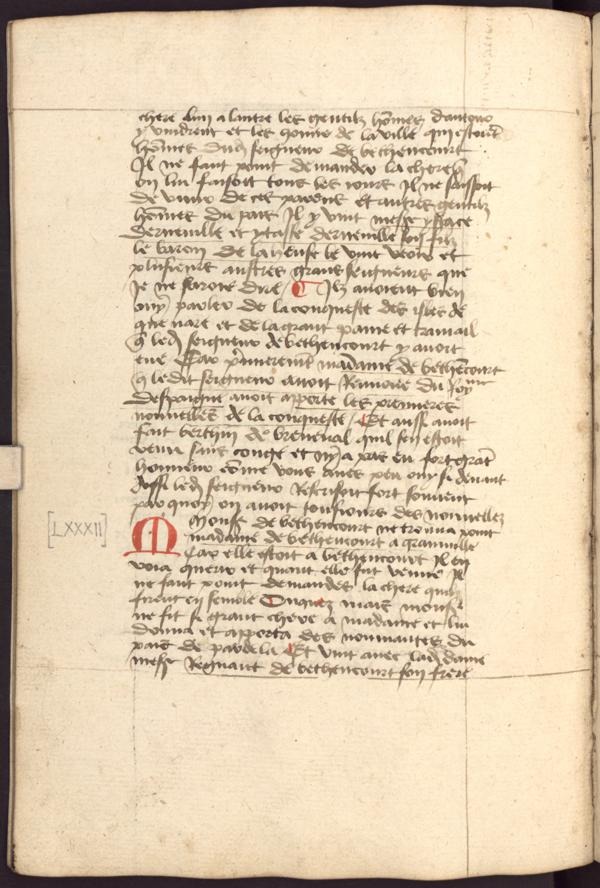 chere lun a lautre les gentilz hom̄es dautour
y vindrent et les homēs de la ville qui estoiēt
hom̄es dud̄ seigneur de bethencourt
Il ne faut point demander la chere q̄
on lui faisoit tous les iours Il ne faissoit
de venir de ces parens et autres gentilz
hom̄es du pais Il y vint messe ystace
derneuille et ystasse derneuille son filz
le baron de la heuse le vint veoir et
plusieurs austres grans seigneurs que
Je ne saroie dire Ilz auoient bien
ouy parler de la conqueste des isles de
quenare et de la grant paine et trauail
q̄ led̄ seigneur de bethencourt y auoit
eue Car p̄mierement madame de bethēcourt
q̄ ledit seigneur auoit Renuoiee du Royaume
despaigne auoit apporte les premieres
nouuelles de la conqueste Et aussi auoit
fait berthin de breneual quil sen estoit
venu sans conge et ny a pas eu fort grāt
honneur com̄e vous aues peu ouy si deuant
Aussi led̄ seigneur Rescrisoit fort souuent
par quoy on auoit tousiours des nouuelles
[LXXXII]
Monsr̄ de bethencourt ne trouua point
madame de bethencourt a grainuille
Car elle estoit a bethencourt Il en
voia querir et quant elle fut venue Il
ne faut point demander la chere quilz
firent en semble Onques mais monsr̄
ne fit si grant chere a madame et lui
donna et apporta des nouuiautes du
pais de par dela Et vint auec lad̄ dame
messr̄ Regnaut de bethencourt son frere